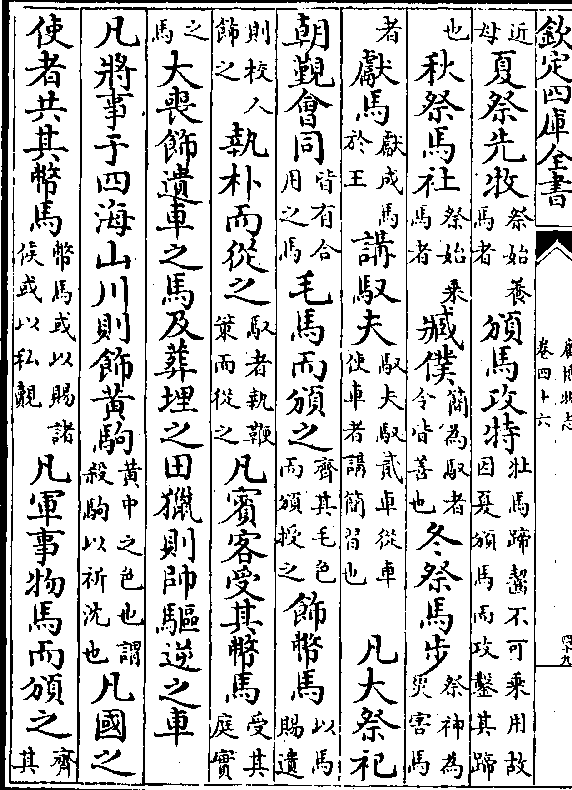 欽定四庫全書
廣博物志
卷四十六
四十九
近母夏祭先牧祭始養馬者頒馬攻特牡馬蹄齧不可乘用故因夏頒馬而攻鑿其蹄
也秋祭馬社祭始乘馬者臧僕簡為馭者令皆善也冬祭馬步祭神為災害馬
者獻馬獻成馬於王講馭夫馭夫馭貳車從車使車者講簡習也凡大祭祀
朝覲會同皆有合用之馬毛馬而頒之齊其毛色而頒授之飾幣馬以馬賜遺
則校人飾之執朴而從之馭者執鞭策而從之凡賓客受其幣馬受其庭實
之馬大喪飾遣車之馬及葬埋之田獵則帥驅逆之車
凡將事于四海山川則飾黃駒黃中之色也謂殺駒以祈沈也凡國之
使者共其幣馬幣馬或以賜諸侯或以私覿凡軍事物馬而頒之齊其